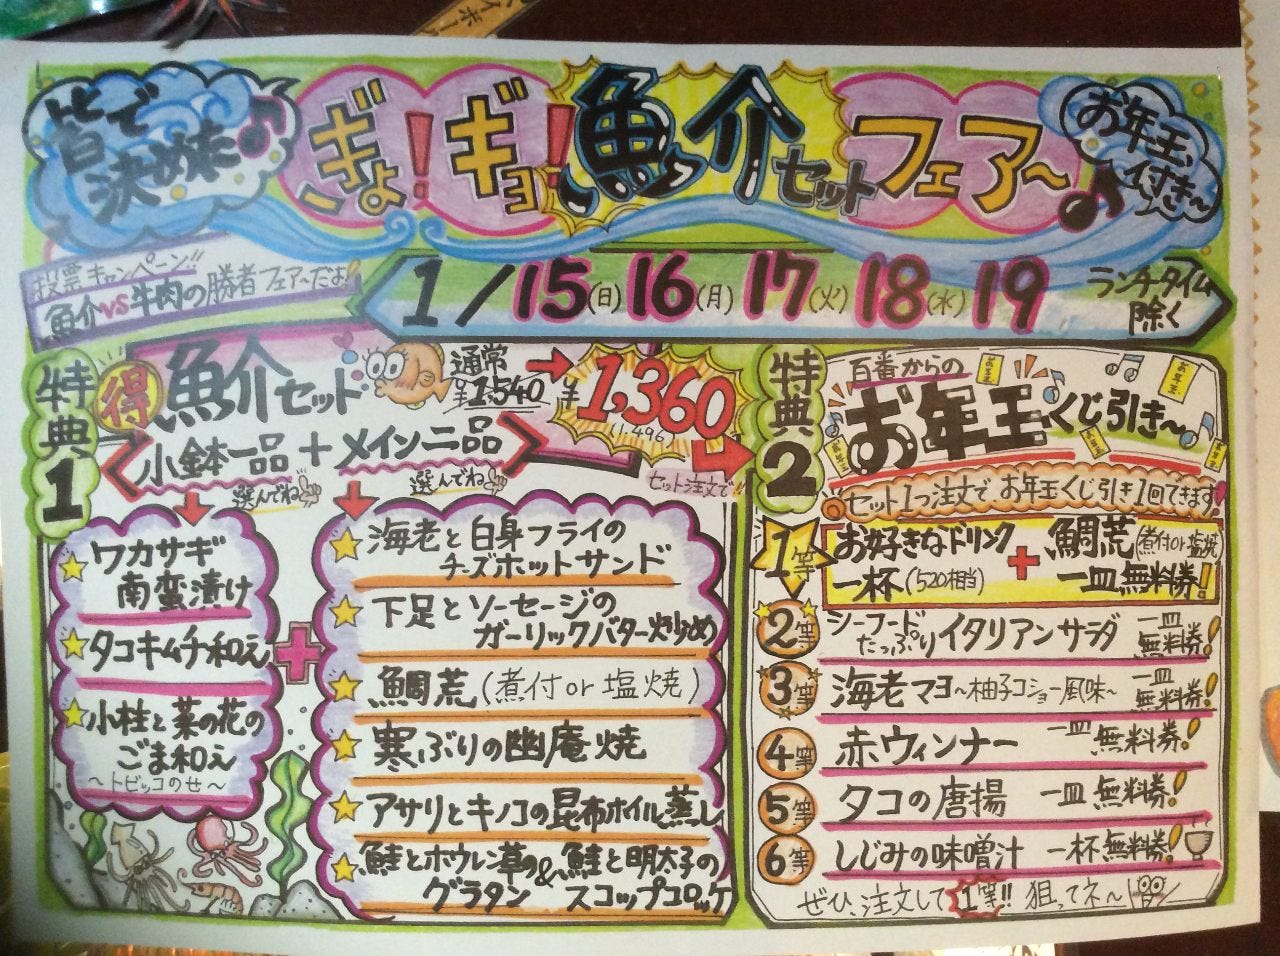 皆で
決めた♪
ぎょ!ギョ!魚介セットフェア〜♪
お年玉
付き〜
投票キャンペーン!!
魚介vs牛肉の勝者フェア〜だよ!
1/15(日)16(月)17(火)18(水)19
ランチタイム
除く
特典1
得 魚介セット
通常
¥1,540
¥1,360
(1,496)
セット注文で!!
小鉢一品+メイン二品
選んでね
選んでね
☆ワカサギ
南蛮漬け
☆タコキムチ和え
☆小柱と菜の花の
ごま和え
〜トビッコのせ〜
+
☆海老と白身フライの
チーズホットサンド
☆下足とソーセージの
ガーリックバター炒め
☆鯛荒(煮付or塩焼)
☆寒ぶりの幽庵焼
☆アサリとキノコの昆布ホイル蒸し
☆鮭とホウレン草の
グラタン
&
鮭と明太子の
スコップコロッケ
特典2
百番からの
お年玉くじ引き〜
お年玉
セット1つ注文でお年玉くじ引き1回できます!
1等 お好きなドリンク
一杯(520相当)
+
鯛荒(煮付or塩焼)
一皿無料券!
2等 シーフード
たっぷりイタリアンサラダ 一皿
無料券!
3等 海老マヨ〜柚子コショー風味〜 一皿
無料券!
4等 赤ウィンナー 一皿無料券!
5等 タコの唐揚 一皿無料券!
6等 しじみの味噌汁 一杯無料券!
ぜひ、注文して1等!!狙ってネ〜